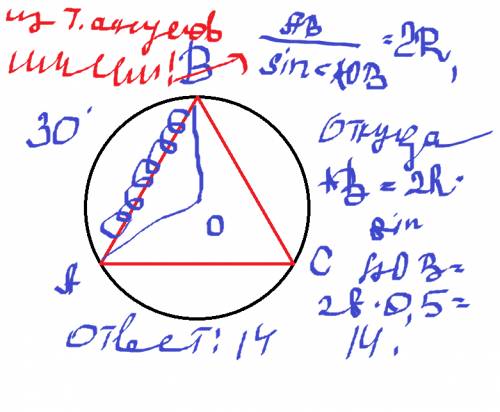 из т. синусов
имеем!
AB
sin<AOB
=2R,
B
30°
Откуда
AB = 2R·
sin
AOB=
28·0,5=
14.
O
A
C
Ответ: 14